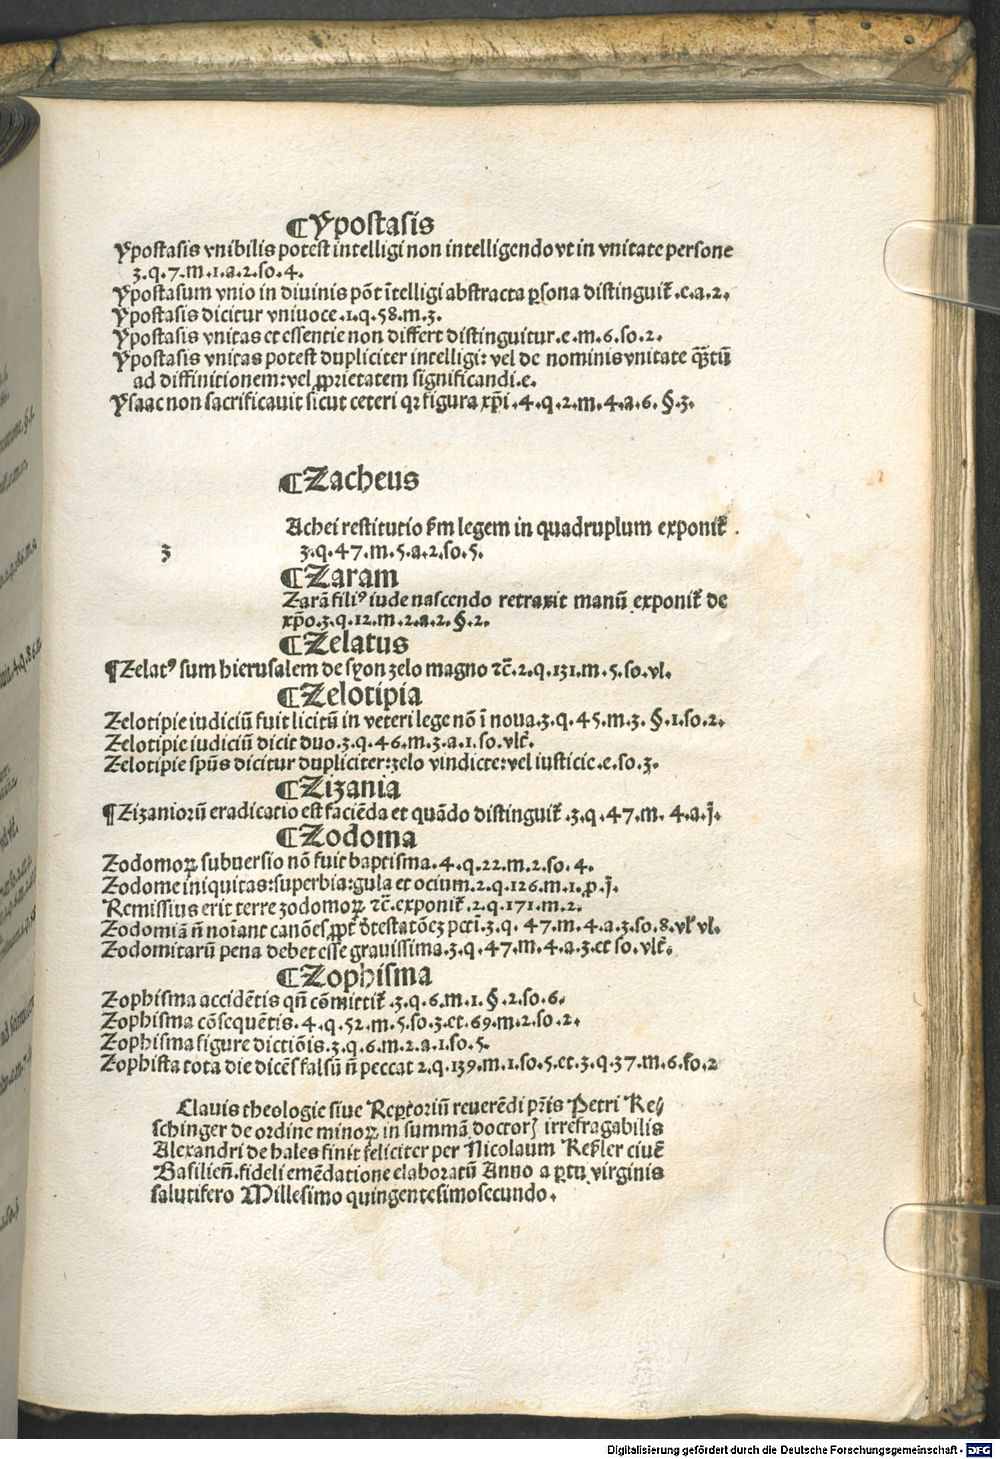 ¶Ypostasis
Ypostasis vnibilis potest intelligi non intelligendo vt in vnitate persone
3.q.7.m.1.a.2.so.4.
Ypostasum vnio in diuinis põt ĩtelligi abstracta ꝑsona distinguit᷑.e.a.2.
Ypostasis dicitur vniuoce.1.q.58.m.3.
Ypostasis vnitas et essentie non differt distinguitur.e.m.6.so.2.
Ypostasis vnitas potest dupliciter intelligi: vel de nominis vnitate q̃tũ
ad diffinitionem: vel ꝓprietatem significandi.e.
Ysaac non sacrificauit sicut ceteri qꝛ figura xp̃i.4.q.2.m.4.a.6.§.3.
¶Zacheus
Achei restitutio ẜm legem in quadruplum exponit᷑.
3
3.q.47.m.5.a.2.so.5.
¶Zaram
Zarã filiꝰ iude nascendo retraxit manũ exponit᷑ de
xp̃o.3.q.12.m.2.a.2.§.2.
¶Zelatus
¶Zelatꝰ sum hierusalem de syon zelo magno ⁊c̃.2.q.131.m.5.so.vl.
¶Zelotipia
Zelotipie iudiciũ fuit licitũ in veteri lege nõ ĩ noua.3.q.45.m.3.§.1.so.2.
Zelotipie iudiciũ dicit duo.3.q.46.m.3.a.1.so.vlt̃.
Zelotipie spũs dicitur dupliciter: zelo vindicte: vel iusticie.e.so.3.
¶Zizania
¶Zizaniorũ eradicatio est faciẽda et quãdo distinguit᷑.3.q.47.m.4.a.j.
¶Zodoma
Zodomoꝝ subuersio nõ fuit baptisma.4.q.22.m.2.so.4.
Zodome iniquitas: superbia: gula et ocium.2.q.126.m.1.p.j.
Remissius erit terre zodomoꝝ ⁊c̃.exponit᷑.2.q.171.m.2.
Zodomiã ñ noĩant canões ꝓpt̃ detestatõeꝫ pctĩ.3.q.47.m.4.a.3.so.8.vl᷑ vl.
Zodomitarũ pena debet esse grauissima.3.q.47.m.4.a.3.et so.vlt̃.
¶Zophisma
Zophisma accidẽtis qñ cõmittit᷑.3.q.6.m.1.§.2.so.6.
Zophisma cõsequẽtis.4.q.52.m.5.so.3.et.69.m.2.so.2.
Zophisma figure dictiõis.3.q.6.m.2.a.1.so.5.
Zophista tota die dicẽs falsũ ñ peccat 2.q.139.m.1.so.5.et.3.q.37.m.6.so.2
Clauis theologie siue Reꝑtoriũ reuerẽdi pr̃is Petri Ke⸗
schinger de ordine minoꝝ in summã doctorꝭ irrefragabilis
Alexandri de hales finit feliciter per Nicolaum Keßler ciuẽ
Basilieñ.fideli emẽdatione elaboratũ Anno a ꝑtu virginis
salutifero Millesimo quingentesimosecundo.
Digitalisierung gefördert durch die Deutsche Forschungsgemeinschaft - DFG